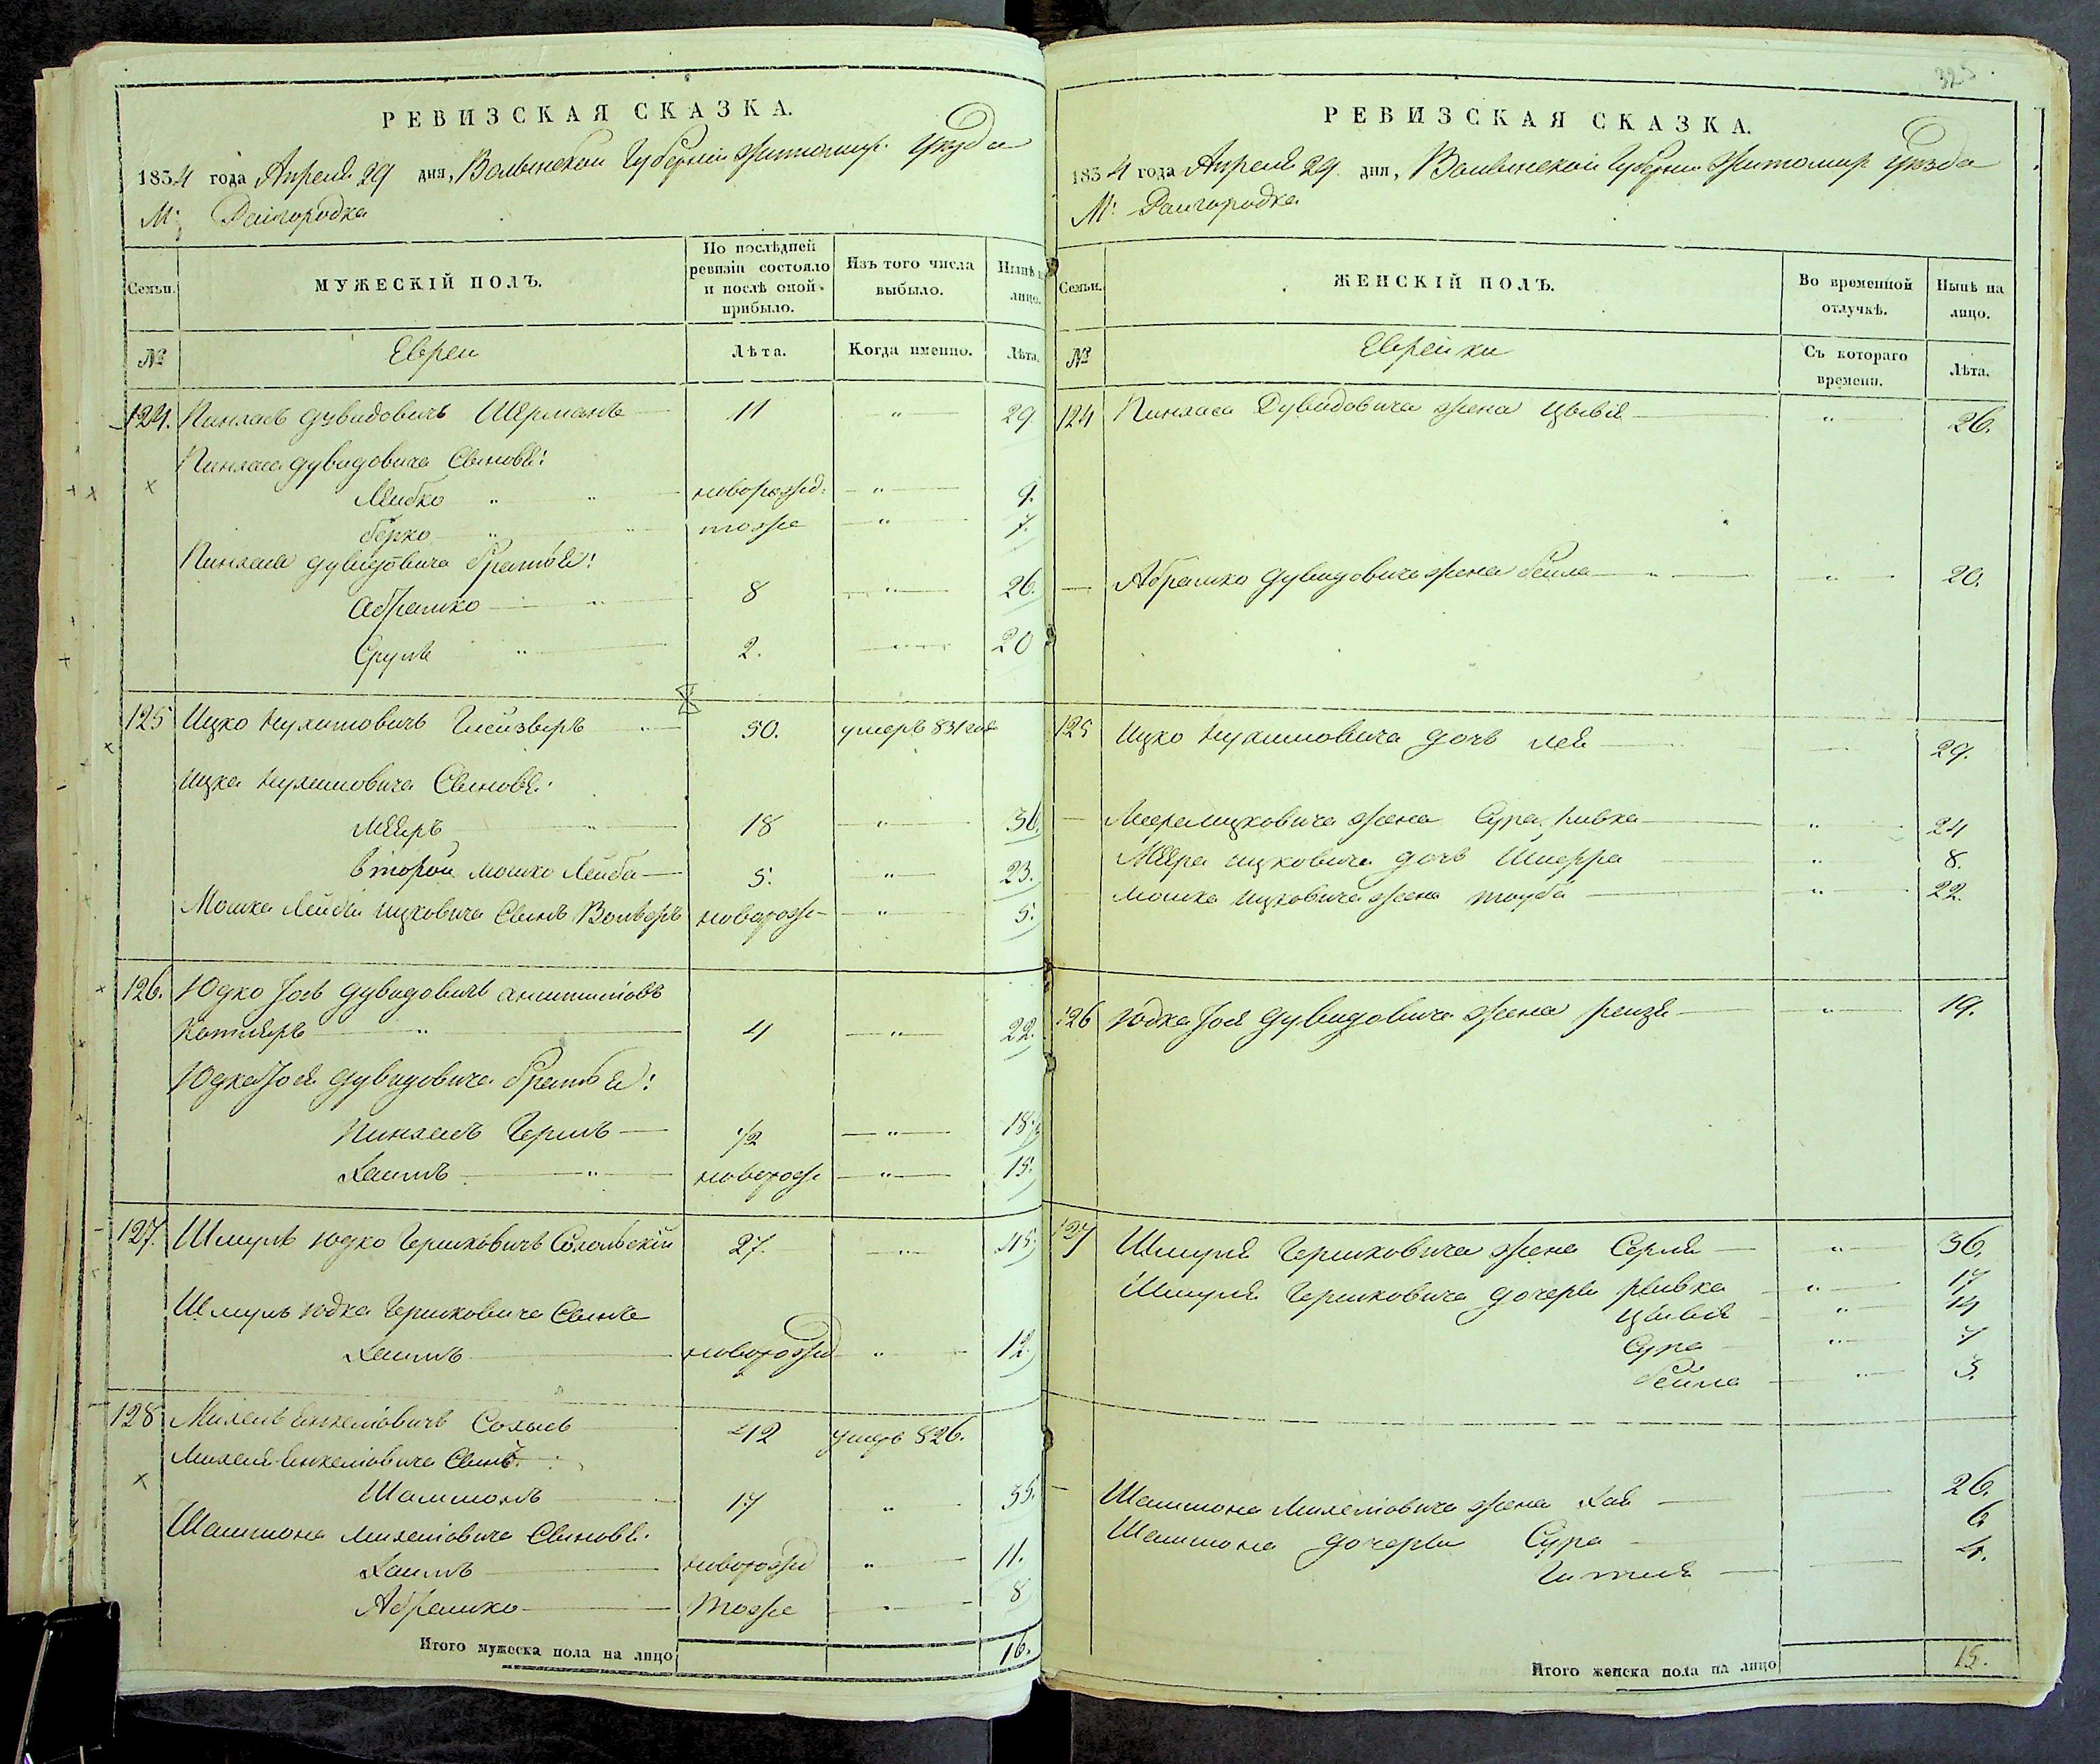 РЕВИЗСКАЯ СКАЗКА.
1834 года Апреля 29 дня, Волынской Губерніи Житомир. Уезда
М: Райгородка
Семьи.
МУЖЕСКІЙ ПОЛЪ.
По послѣдней ревизіи состояло и послѣ оной прибыло.
Изъ того числа выбыло.
Нынѣ на лицо.
№
Евреи
Лѣта.
Когда именно.
Лѣта.
124. Пинхасъ Дувидовичъ Шерманъ 11 " 29.
Пинхаса Дувидовича Сыновья:
Лейбко " " новорожд. " 9.
Берко " " тоже " 7.
Пинхаса Дувидовича братья:
Абрамко " 8 " 26.
Сруль " 2. " 20
125 Ицко Нухимовичъ Глейзеръ 50. умеръ 831 года
Ицка Нухимовича Сыновья:
Мееръ " 18 " 36.
второй Мошко Лейба 5. " 23.
Мошка Лейбы Ицковича Сынъ Вольфъ новорож " 5.
126. Юдко Іось Дувидовичъ
Котляръ " 4 " 22.
Юдка Іося Дувидовича братья:
Пинхасъ Гершъ 1/2 " 18 1/2
Хаимъ " новорож " 15.
127. Шмуль Юдко Гершковичъ Сокольскій 27. " 45.
Шмуль Юдка Гершковича Сынъ
Хаимъ новорожд " 12.
128 Михель Янкеліовичъ 42 умеръ 826.
Михеля Янкеліовича Сынъ:
Шлиомонъ 17 " 35.
Шлиомона Михеліовича Сыновья:
Хаимъ новорожд " 11.
Абрамко тоже 8
Итого мужеска пола на лицо 16.
325.
РЕВИЗСКАЯ СКАЗКА.
1834 года Апреля 29 дня, Волынской Губерніи Житомир Уезда
М: Райгородка
Семьи.
ЖЕНСКІЙ ПОЛЪ.
Во временной отлучкѣ.
Нынѣ на лицо.
№
Еврейки
Съ котораго времени.
Лѣта.
124 Пинхаса Дувидовича жена Цывья " 26.
Абрамко Дувидовича жена Бейла " " 20.
125 Ицко Нухимовича дочь Лея 29.
Меера Ицковича жена Сура Ривка " 24
Меера Ицковича дочь Шифра " 8.
Мошка Ицковича жена Тауба " 22.
126 Юдка Іося Дувидовича жена Рейзя " 19.
127 Шмуля Гершковича жена Серля " 36.
Шмуля Гершковича дочери Ривка " 17
Цывья " 14
Сура " 7
Бейла " 3.
Шлиомона Михеліовича жена Хая 26.
Шлиомона дочери Сура 6
Гитля 4.
Итого женска пола на лицо 15.